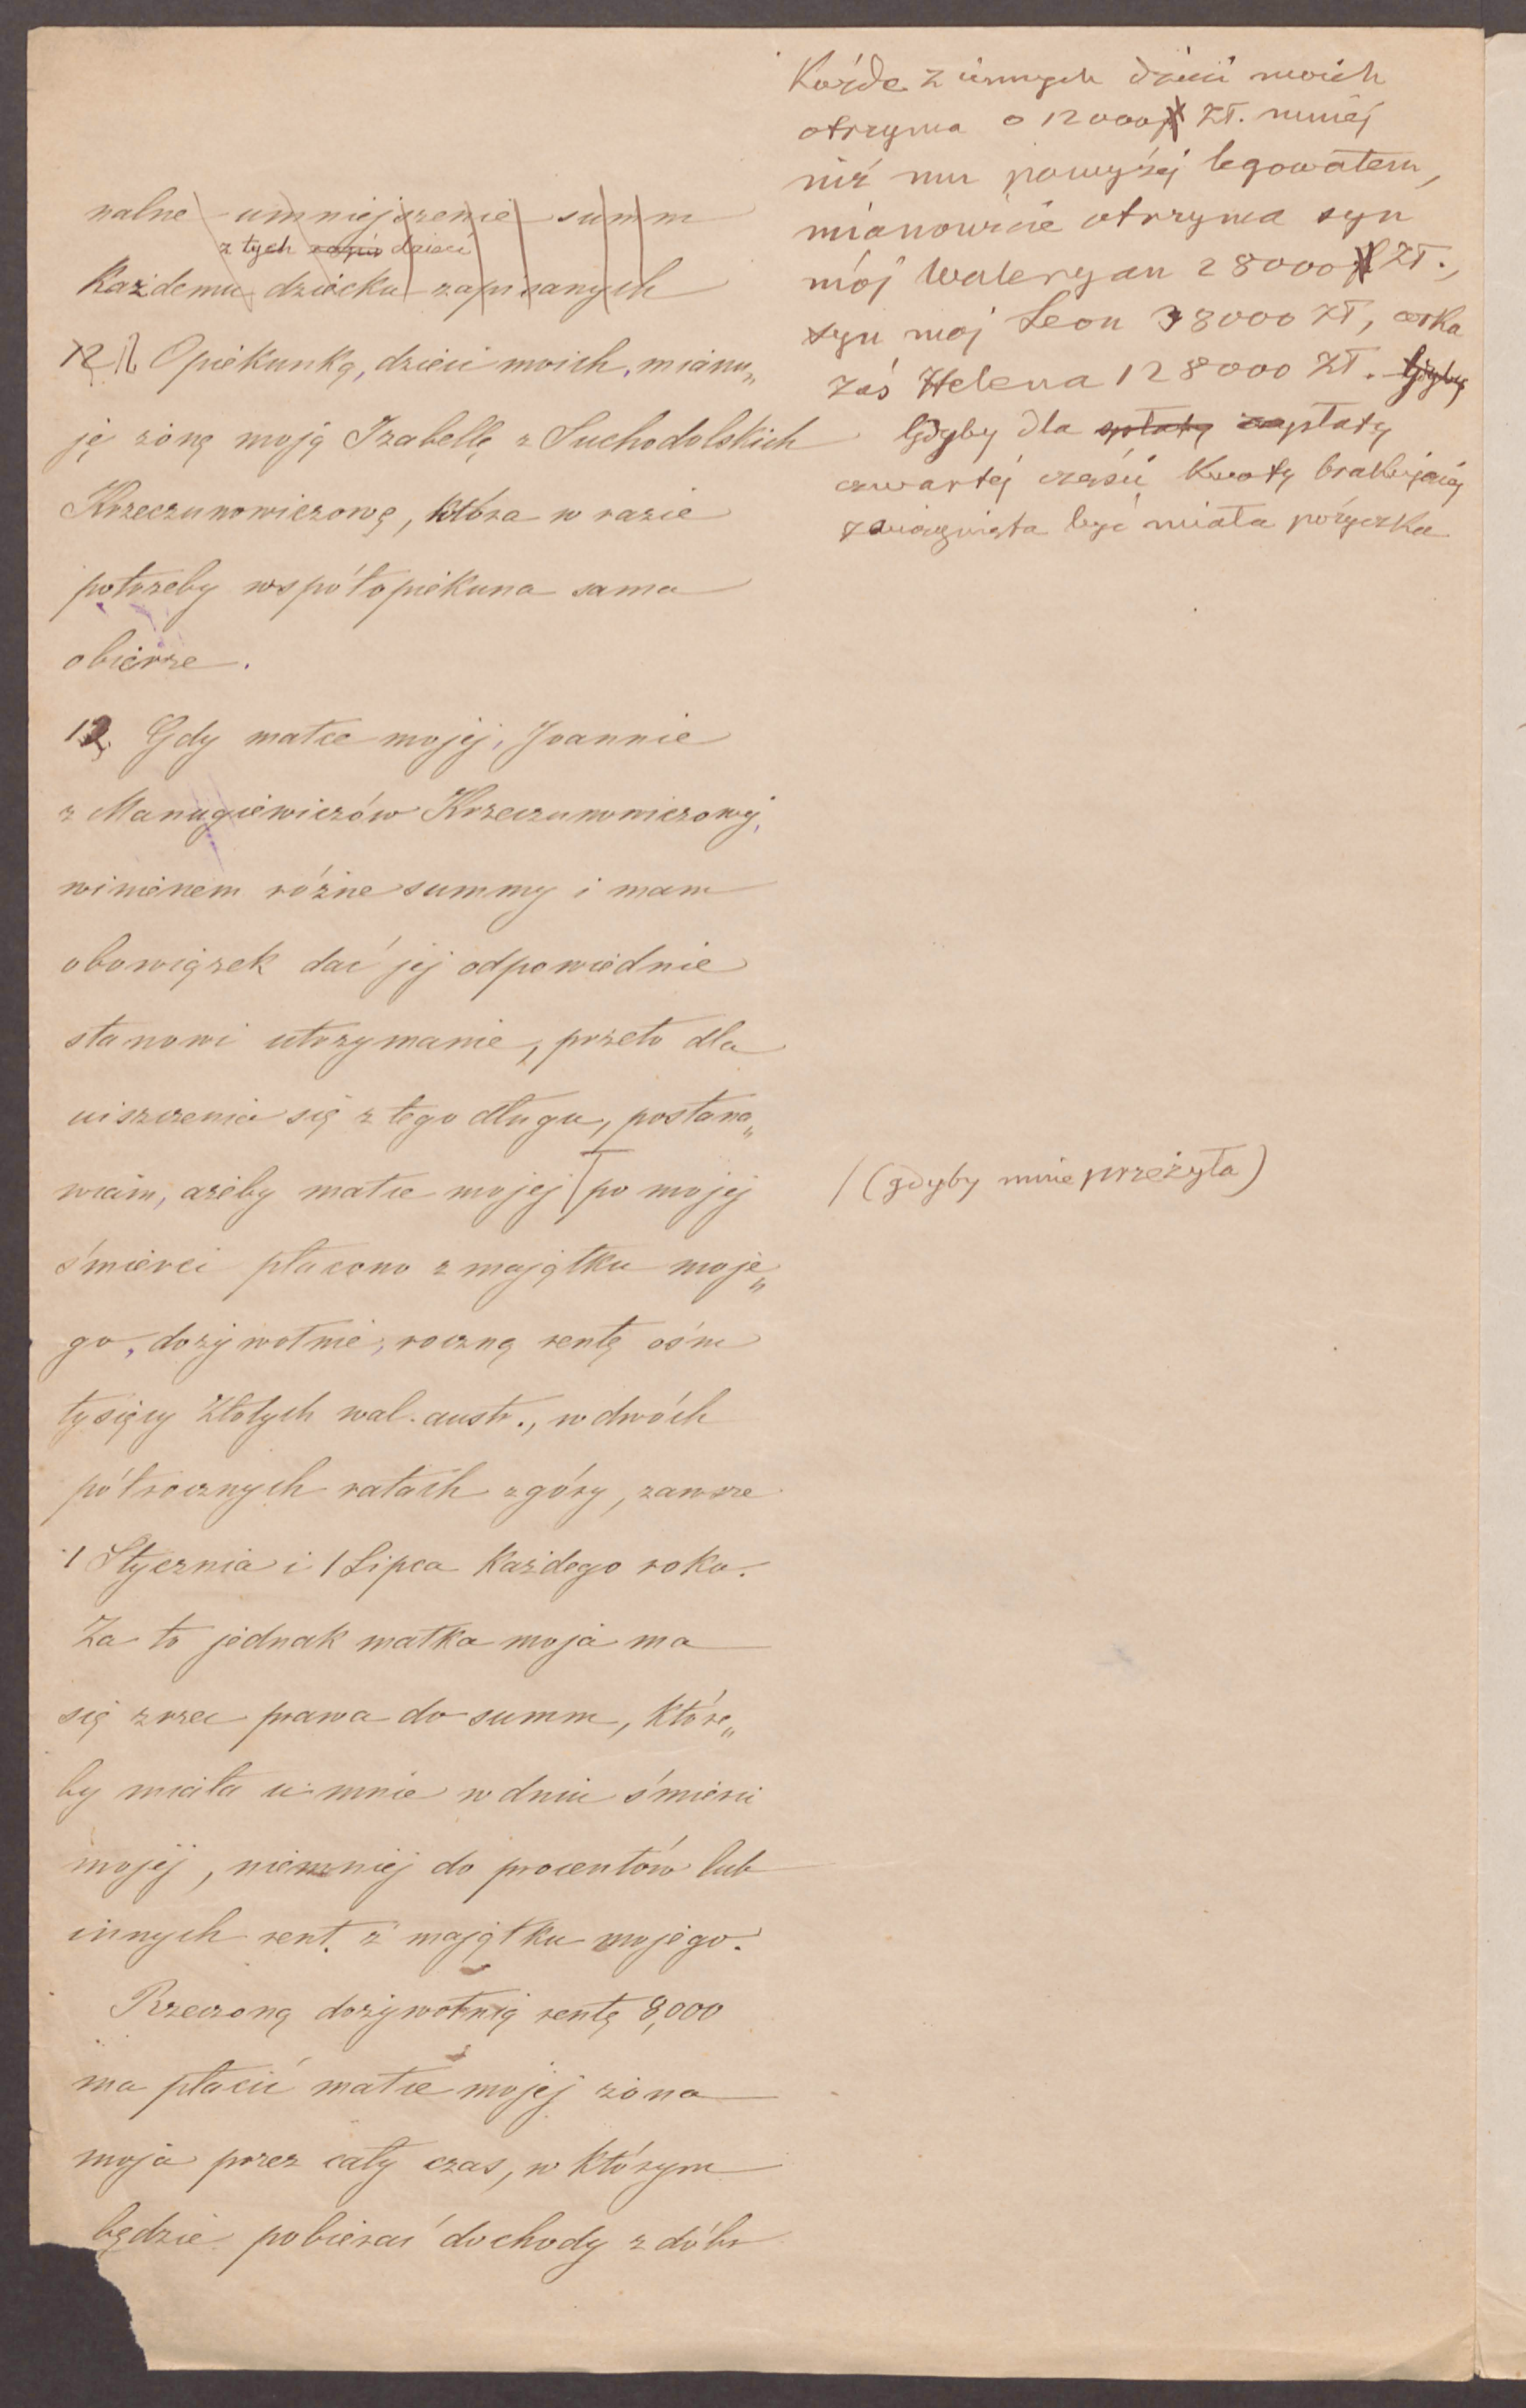 nalne umniejszenie summ
z tych dzieci
Każdemu dziecku zapisanych
12 Opiekunką, dzieci moich, mianu„
ję żonę moją Izabellę z Suchodolskich
Krzeczunowiczową, która w razie
potrzeby współopiekuna sama
obierze.
12. Gdy matce mojej, Joannie
z Manugiewiczów Krzeczunowiczowej,
winienem różne summy i mam
obowiązek dać jej odpowiednie
stanowi utrzymanie, przeto dla
uiszczenia się z tego długu, postana„
wiam, ażeby matce mojej / po mojej
śmierci płacono z majątku moje„
go, dożywotnie, roczną rentę ośm
tysięcy Złotych wal. austr., w dwóch
półrocznych ratach z góry, zawsze
1 Stycznia i 1 Lipca Każdego roku.
Za to jednak matka moja ma
się zrzec prawa do summ, które„
by miała u mnie w dniu śmierci
mojej, niemniej do procentów lub
innych rent. z majątku mojego.
Rzeczoną dożywotnią rentę 8,000
ma płacić matce mojej żona
moja przez cały czas, w którym
będzie pobierać dochody z dóbr
Każde z innych dzieci moich
otrzyma o 12000 Zł. mniej
niż mu powyżej legowałem,
mianowicie otrzyma syn
mój Waleryan 28000 Zł.,
syn moj Leon 38000 Zł, corka
zaś Helena 128000 Zł. Gdyby
Gdyby dla spłaty zapłaty
czwartej części Kwoty brakującej
zaciągnięta być miała pożyczka
/ (gdyby mnie przeżyła)